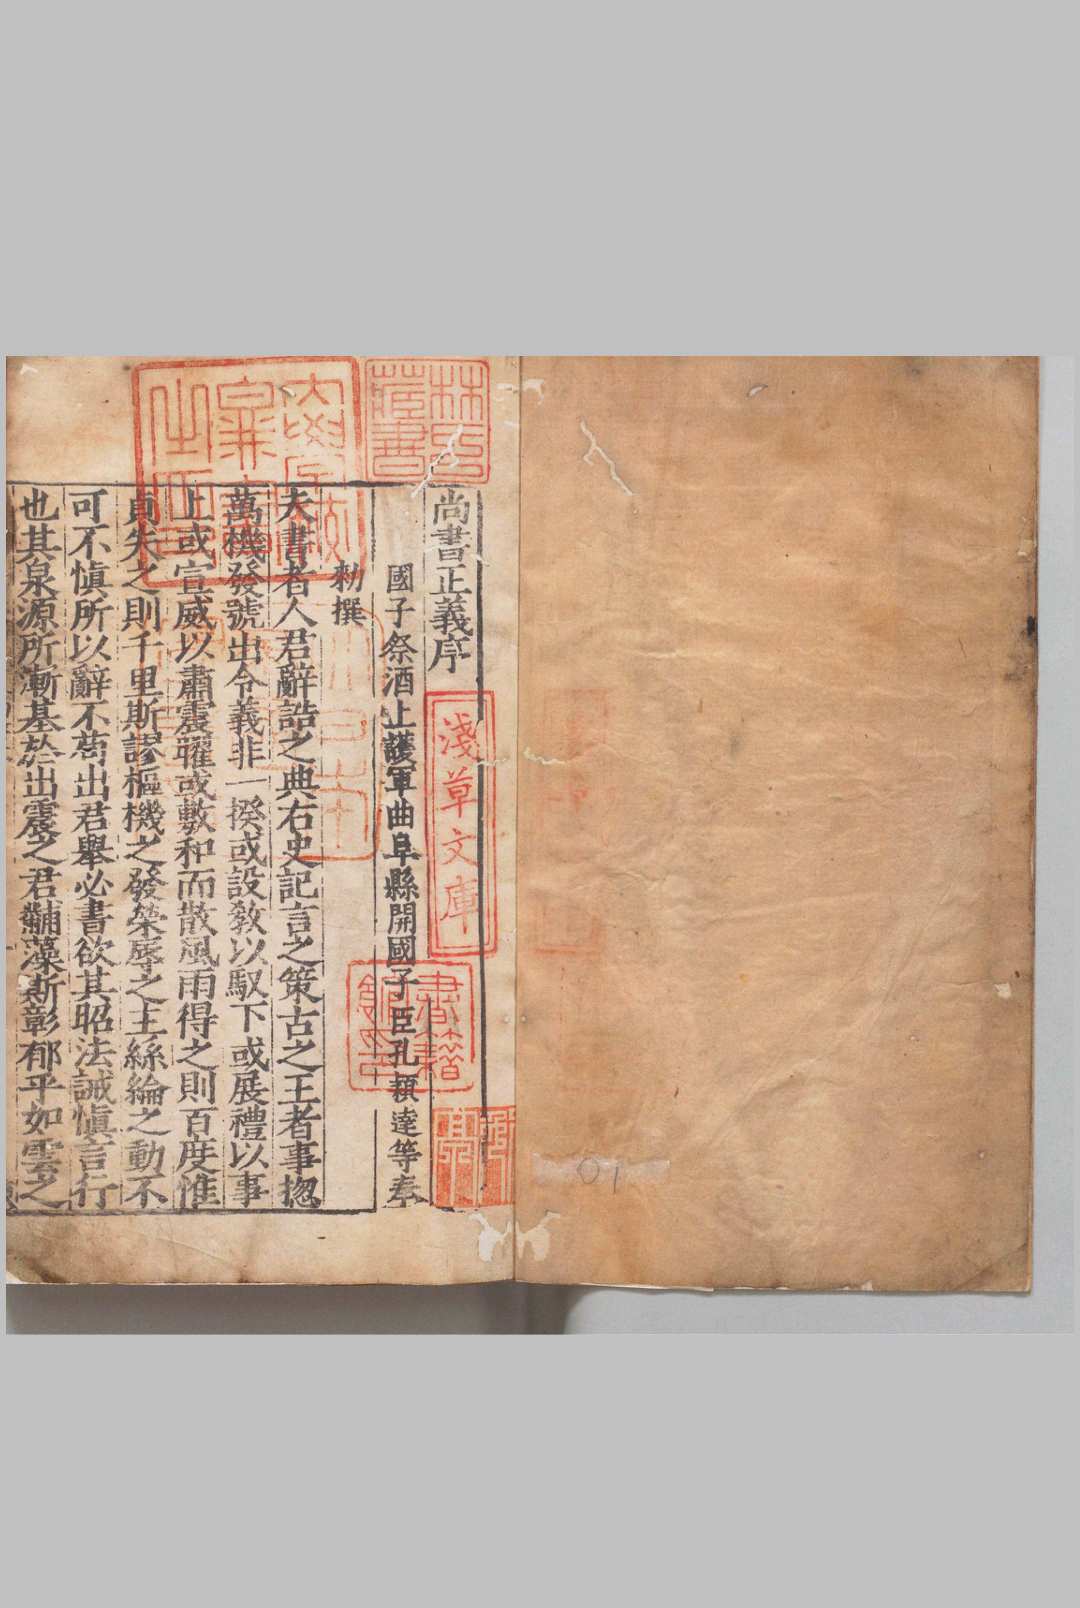 尚書正義序
國子祭酒上護軍曲阜縣開國子臣孔穎達等奉
勑撰
夫書者人君辭誥之典右史記言之策古之王者事揔
萬機發號出令義非一揆或設教以馭下或展禮以事
上或宣威以肅震曜或敷和而散風雨得之則百度惟
貞失之則千里斯謬樞機之發榮辱之主絲綸之動不
可不慎所以辭不苟出君舉必書欲其昭法誡慎言行
也其泉源所漸基於出震之君黼藻斯彰郁乎如雲之
林氏
藏書
淺草文庫
書籍
館印
01